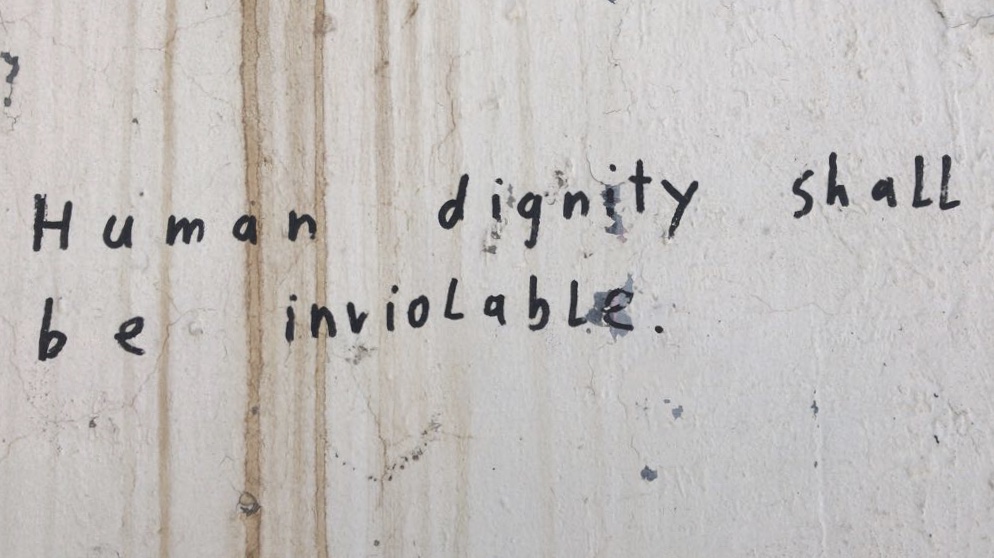 Human dignity shall
be inviolable.